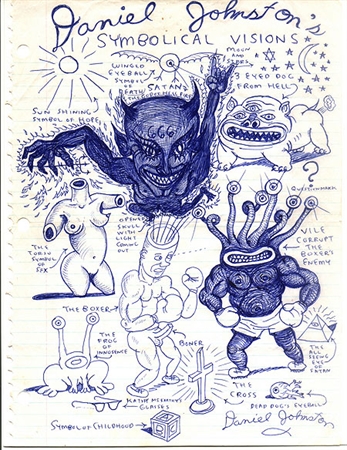 Daniel Johnston's
SYMBOLICAL VISIONS
WINGED
EYEBALL
SYMBOL
OF
DEATH
MOON
AND
STARS
3 EYED DOG
FROM HELL
SATAN
SUN SHINING
SYMBOL OF HOPE
666
?
QUESTION MARK
OPENED
SKULL
WITH
LIGHT
COMING
OUT
THE
TORSO
SYMBOL
OF
SEX
VILE
CORRUPT
THE
BOXER'S
ENEMY
THE BOXER
THE
FROG
OF
INNOCENCE
BONER
THE
ALL
SEEING
EYE
OF
SATAN
THE
CROSS
KATHY McCARTY'S
GLASSES
DEAD DOG'S EYEBALL
SYMBOL OF CHILDHOOD
Daniel Johnston